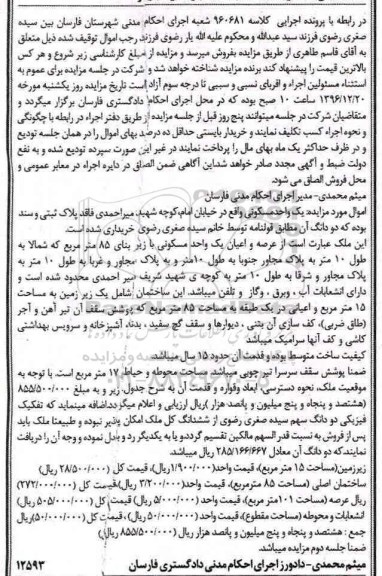 در رابطه با پرونده اجرایی کلاسه ۹۶۰۶۸۱ شعبه اجرای احکام مدنی شهرستان فارسان بین سیده
صغری رضوی فرزند سید عبدالله و محکوم علیه الله یار رضوی فرزند رجب اموال توقیف شده ذیل متعلق
به آقای قاسم طاهری از طریق مزایده بفروش میرسد و مزایده از مبلغ کارشناسی زیر شروع و هر کس
بالاترین قیمت را پیشنهاد کند برنده مزایده شناخته خواهد شد و شرکت در جلسه مزایده برای عموم به
استثناء مسئولین اجراء و اقربای نسبی و سببی تا درجه سوم آزاد است تاریخ مزایده روز یکشنبه مورخه
۱۳۹۶/۱۲/۲۰ ساعت ۱۰ صبح بوده که در محل اجرای احکام دادگستری فارسان برگزار میگردد و
متقاضیان شرکت در جلسه میتوانند پنج روز قبل از جلسه مزایده از طریق دفتر اجراء در رابطه با چگونگی
و نحوه اجراء کسب تکلیف نمایند و خریدار بایستی حداقل ده درصد بهای اموال را در همان جلسه تودیع
و در ظرف حداکثر یک ماه بهای مال را پرداخت نمایند در غیر این صورت سپرده تودیع شده و به نفع
دولت ضبط و آگهی مجدد صادر خواهد شد این آگاهی ضمن الصاق در دایره اجراء در معابر عمومی و
محل فروش الصاق می شود.
میثم محمدی- مدیر اجرای احکام مدنی فارسان
اموال مورد مزایده یک واحد مسکونی واقع در خیابان امام، کوچه شهید میراحمدی فاقد پلاک ثبتی و سند
بوده که دو دانگ آن مطابق قولنامه توسط خانم سیده صغری رضوی خریداری شده است.
این ملک عبارت است از عرصه و اعیان یک واحد مسکونی با زیر بنای ۸۵ متر مربع که شمالا به
طول ۱۰ متر به پلاک مجاور جنوبا به طول ۱۰متر و به پلاک مجاور و غربا به طول ۱۰ متر به
پلاک مجاور و شرقا به طول ۱۰ متر به کوچه ی شهید شریف میر احمدی محدود شده است و
دارای انشعابات آب ، وبرق ، وگاز و تلفن میباشد. این ساختمان شامل یک زیر زمین به مساحت
۱۵ متر مربع و اعیانی در یک طبقه به مساحت ۸۵ متر مربع که پوشش سقف آن تیر آهن و آجر
(طاق ضربی)، کف سازی آن بتنی ، دیوارها و سقف گچ سفید ، بدنه آشپزخانه و سرویس بهداشتی
کاشی و کف آنها سرامیک میباشد
کیفیت ساخت متوسط بوده و قدمت آن حدود ۱۵ سال میباشد.
ضمنا پوشش سقف سرسرا تیر چوبی میباشد. مساحت محوطه و حیاط، ۱۷ متر مربع است. با توجه به
موقعیت ملک، نحوه دسترسی، ابعاد وقواره و قدمت آن به شرح جدول زیر و به مبلغ ۸۵۵/۵۰۰/۰۰۰
(هشتصد و پنجاه و پنج میلیون و پانصد هزار )ریال ارزیابی و اعلام میگردد.اضافه مینماید که تفکیک
فیزیکی دو دانگ سهم سیده صغری رضوی از ششدانگ کل ملک امکان پذیر نبوده و طبیعتا ملک باید
پس از فروش به نسبت قدر السهم مالکین تقسیم گردد و یا به یکدیگر رد و بدل نموده و وجه آن را دریافت
نمایند.که دو دانگ آن معادل ۲۸۵/۱۶۶/۶۶۷ ریال میباشد.
زیرزمین(مساحت ۱۵ متر مربع)، قیمت واحد(۱/۹۰۰/۰۰۰ریال)، قیمت کل (۲۸/۵۰۰/۰۰۰ ریال)
ساختمان اصلی (مساحت ۸۵ مترمربع)، قیمت واحد(۳/۲۰۰/۰۰۰ ریال)،قیمت کل (۲۷۲/۰۰۰/۰۰۰
ریال عرصه (مساحت ۱۰۱متر مربع)، قیمت واحد(۵/۰۰۰/۰۰۰ ریال)،قیمت کل (۵۰۵/۰۰۰/۰۰۰ ریال)
انشعابات و محوطه (مساحت مقطوع)، قیمت واحد(۵۰/۰۰۰/۰۰۰ ریال) ، قیمت کل (۵۰/۰۰۰/۰۰۰ریال)
جمع : هشتصد و پنجاه و پنج میلیون و پانصد هزار ریال (۸۵۵/۵۰۰/۰۰۰ ریال)
ضمنا جلسه دوم مزایده میباشد.
میثم محمدی- دادورز اجرای احکام مدنی دادگستری فارسان ۱۲۵۹۳